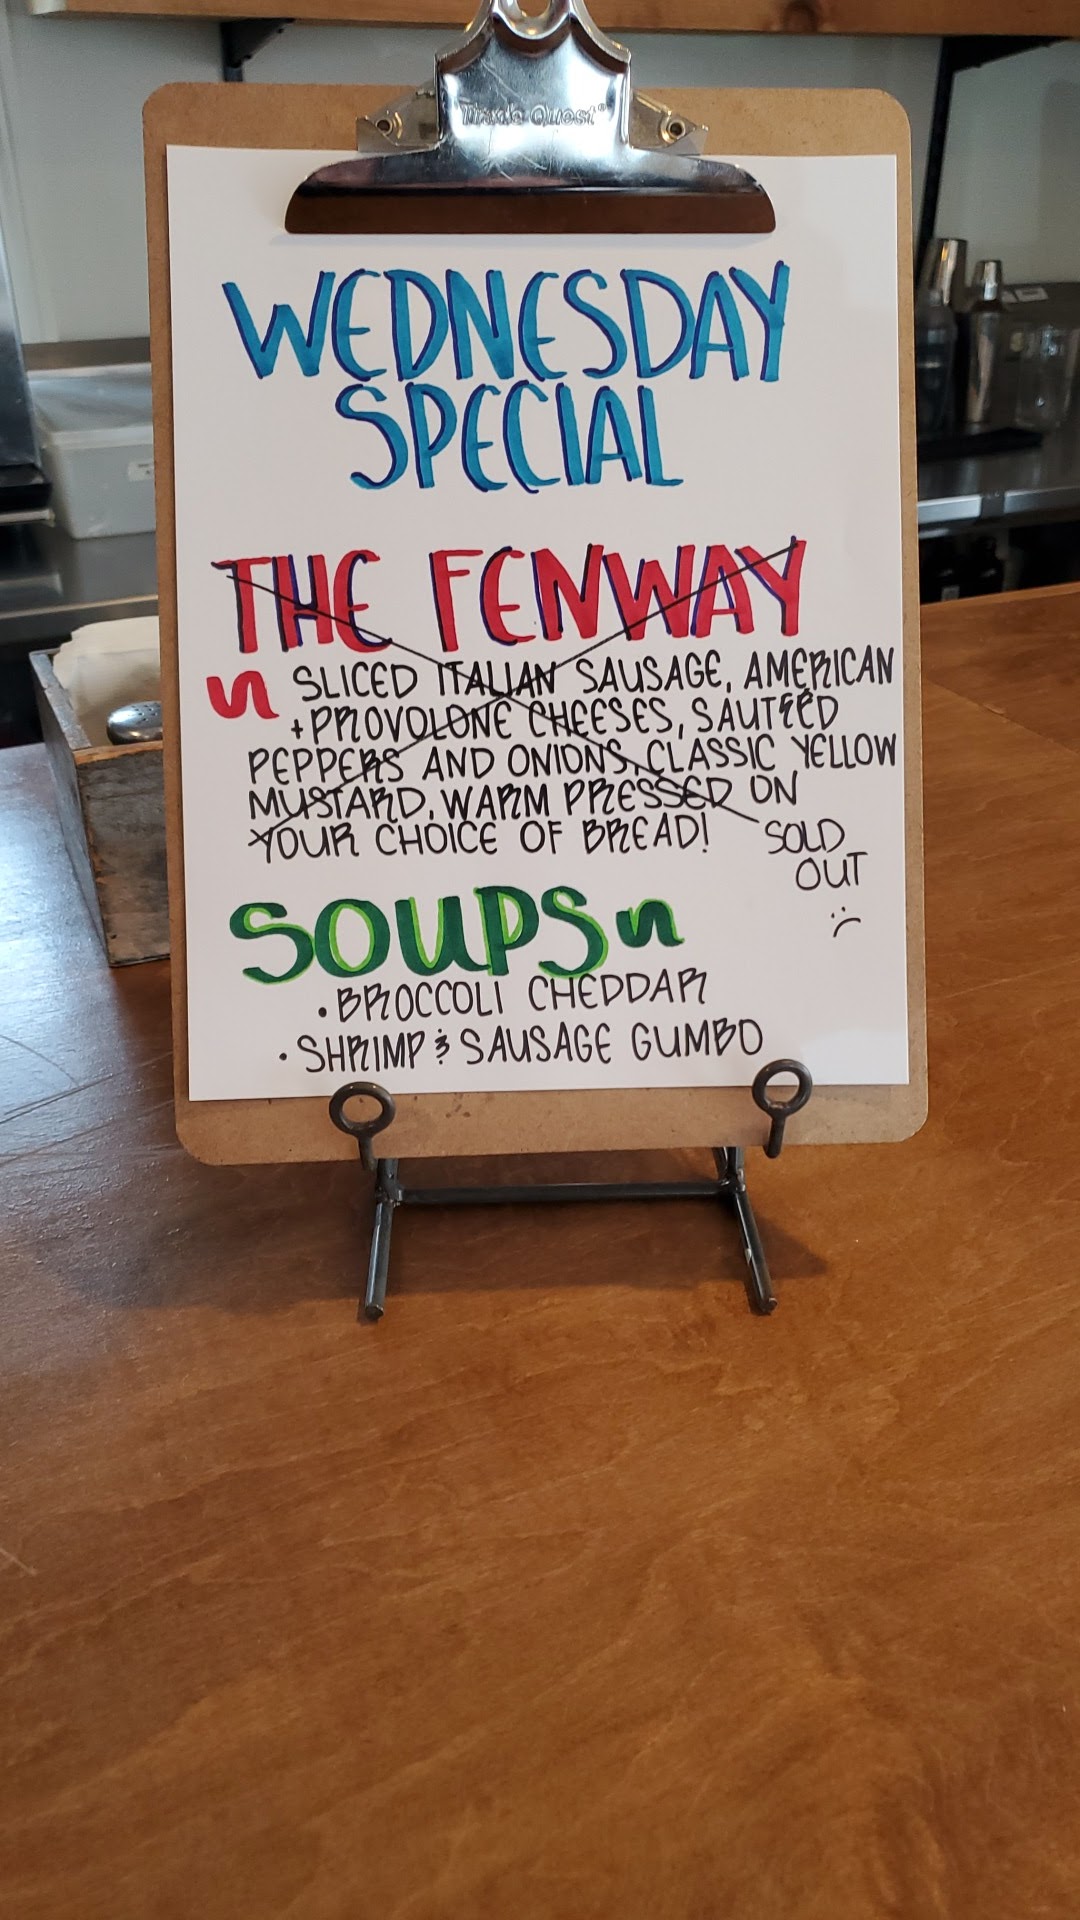 Trade Quest
WEDNESDAY
SPECIAL
THE FENWAY
SLICED ITALIAN SAUSAGE, AMERICAN
+ PROVOLONE CHEESES, SAUTEED
PEPPERS AND ONIONS, CLASSIC YELLOW
MUSTARD, WARM PRESSED ON
YOUR CHOICE OF BREAD!
SOLD
OUT
:(
SOUPS
• BROCCOLI CHEDDAR
• SHRIMP & SAUSAGE GUMBO